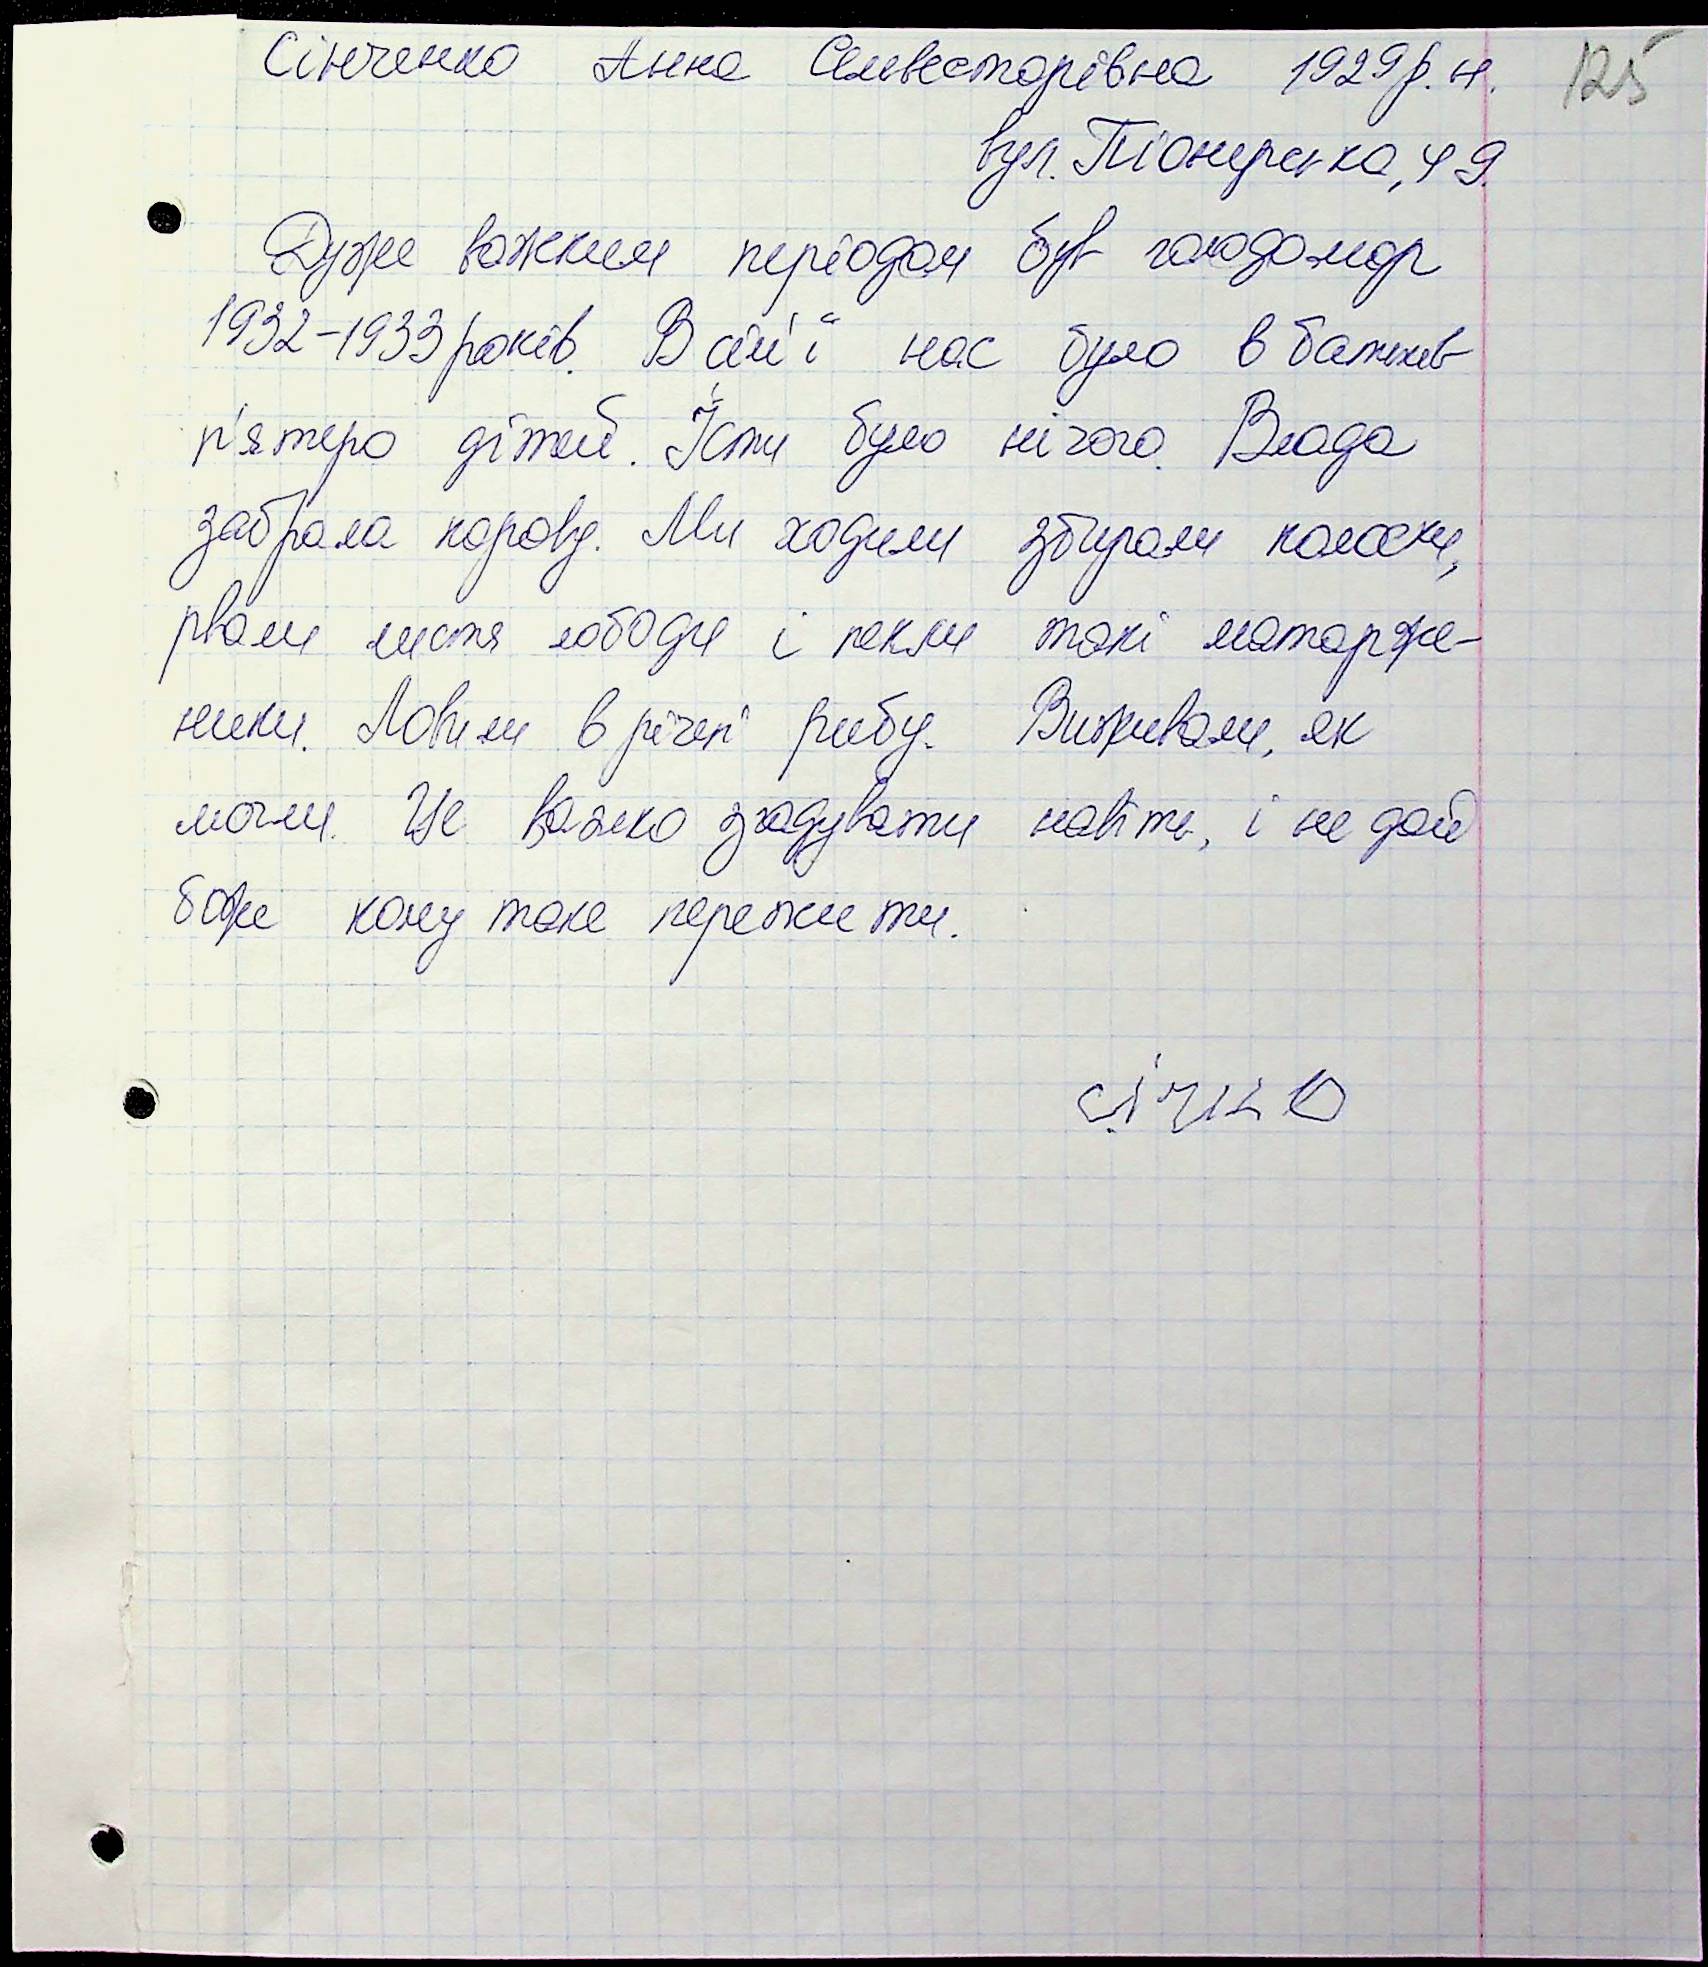 Сінченко Анна Сельвесторівна 1929 р. н. 125
вул. Піонерська, 49.
Дуже важким періодом був голодомор
1932-1933 років. В сім'ї нас було в батьків
п'ятеро дітей. Їсти було нічого. Влада
забрала корову. Ми ходили збирали колоски,
рвали листя лободи і пекли такі маторже-
ники. Ловили в річці рибу. Виживали, як
могли. Це важко згадувати навіть, і не дай
боже кому таке пережити.